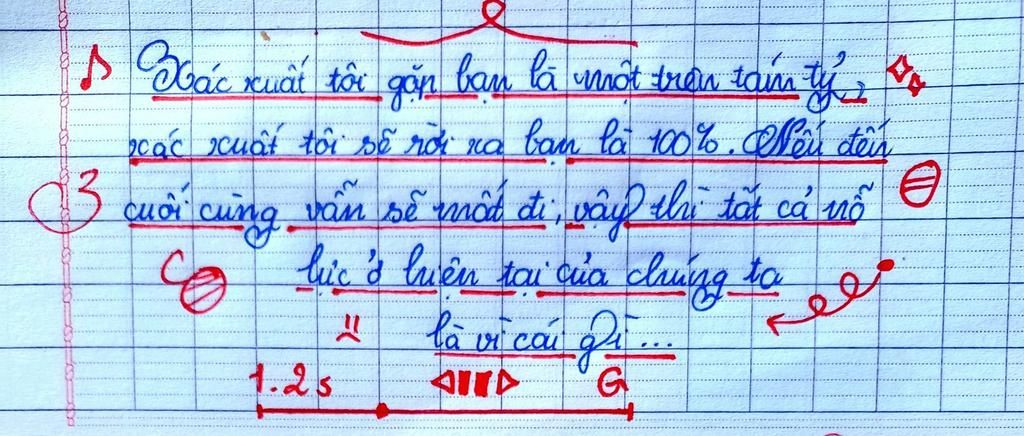 Xác xuất tôi gặp bạn là một trên tám tỷ,
xác xuất tôi sẽ rời xa bạn là 100%. Nếu đến
cuối cùng vẫn sẽ mất đi, vậy thì tất cả nỗ
lực ở hiện tại của chúng ta
là vì cái gì...
1.2s